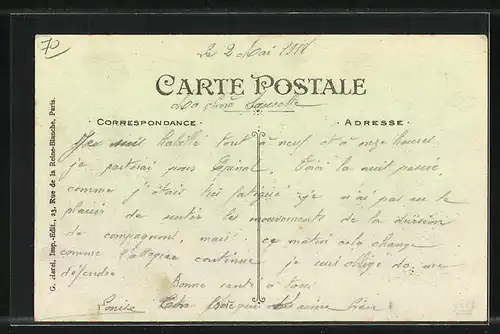 70
Le 2 Mai 1918
CARTE POSTALE
Ma chère
CORRESPONDANCE
ADRESSE
G. Marsi, Imp.-Édit., 23, Rue de la Reine-Blanche, Paris.
suis habillé tout à neuf et à onze heures
je partirai pour Epinal. Voici la nuit passée,
comme j'étais très fatigué je n'ai pas eu le
plaisir de sentir les mouvements de la
de compagnons, mais ce matin cela change
comme continue je suis obligé de me
défendre. Bonne santé à tous
Louise